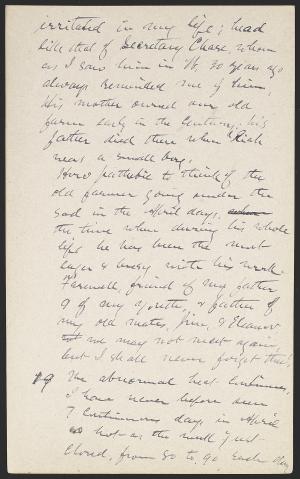 irritated in my life; head
like that of Secretary Chase, whom
as I saw him in W. 30 years ago
always reminded me of him,
His mother owned our old
farm early in the Century; his
father died there when Rich
was a small boy.
How pathetic to think of the
old farmer going under the
sod in the April days,
the time when during his whole
life he has been the most
eager & busy with his work.
Farewell, friend of my father
& of my youth, & father of
my old mates, Jim, & Eleanor
we may not meet again,
but I shall never forget thee.
19 The abnormal heat continues,
I have never before seen
7 continuous days in April
so hot as the week just
closed, from 80 to 90 each day